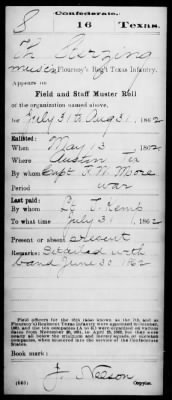 Confederate.
S 16 Texas.
Th. Berzing
Music'n Flournoy's Reg't Texas Infantry.
Appears on
Field and Staff Muster Roll
of the organization named above,
for July 31 to Aug 31, 1862
Enlisted:
When May 13 1862
Where Austin
By whom Capt R. M. Moore
Period war
Last paid:
By whom Lt T. Kemp
To what time July 31, 1862
Present or absent present
Remarks: Detailed with
band June 30 1862
Book mark:
J. Nelson
(640) Copyist.